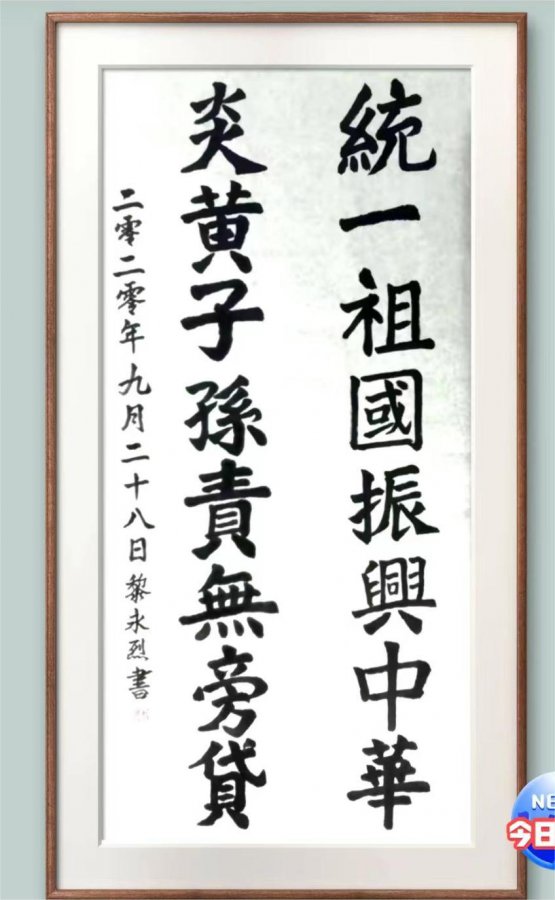 統一祖國振興中華
炎黃子孫責無旁貸
二零二零年九月二十八日黎永烈書
NE
今日